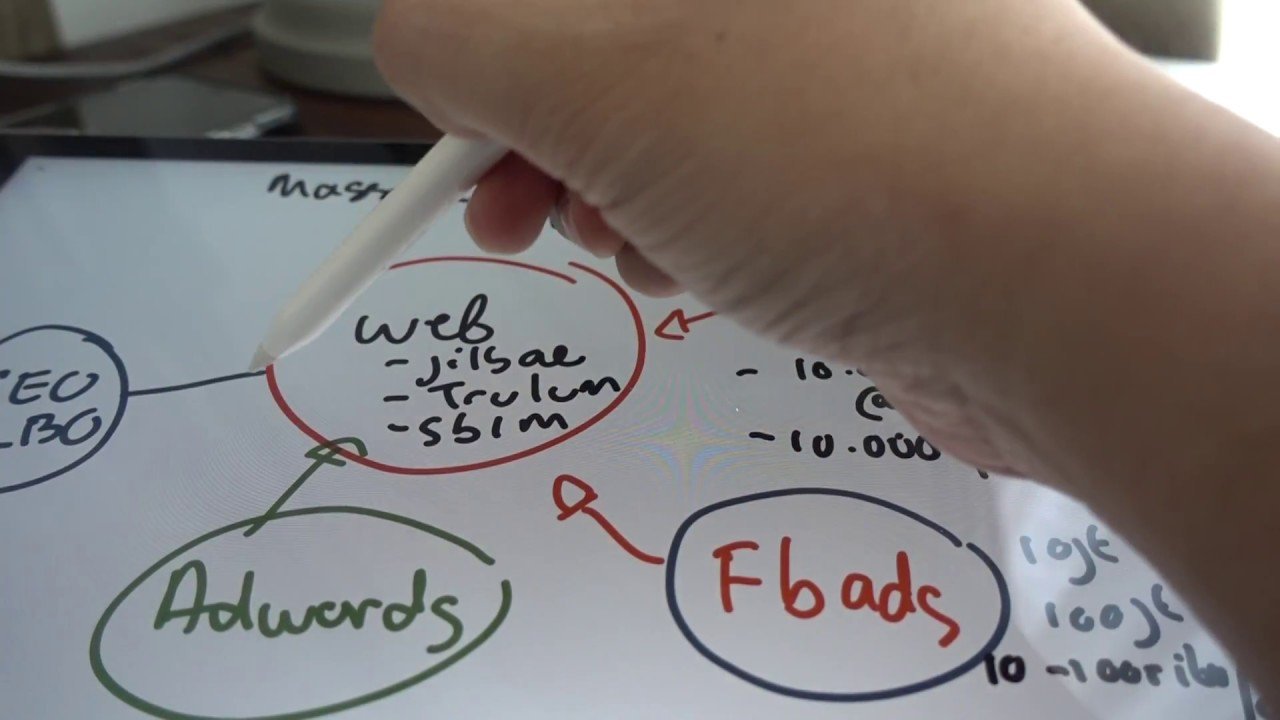 web
- jilbae
- Trulum
- sbim
- 10.
- 10.000
Adwords
Fb ads
10jt
100jt
10 - 100 ribu